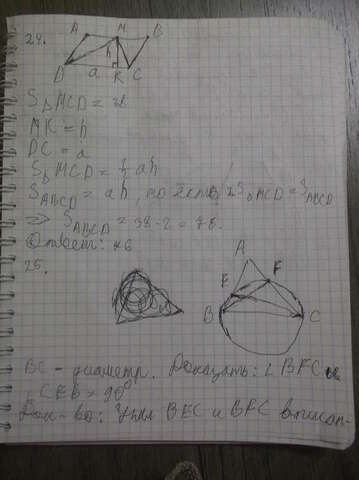 24.
A M B
h
D a K C
S△MCD = 38
MK = h
DC = a
S△MCD = ½ ah
SABCD = ah, то есть 2S△MCD = SABCD
=> SABCD = 38 · 2 = 76.
Ответ: 76
25.
A
E F
B C
BC - диаметр. Доказать: ∠ BFC и
∠ CEB = 90°
Док-во: Углы BEC и BFC вписан-